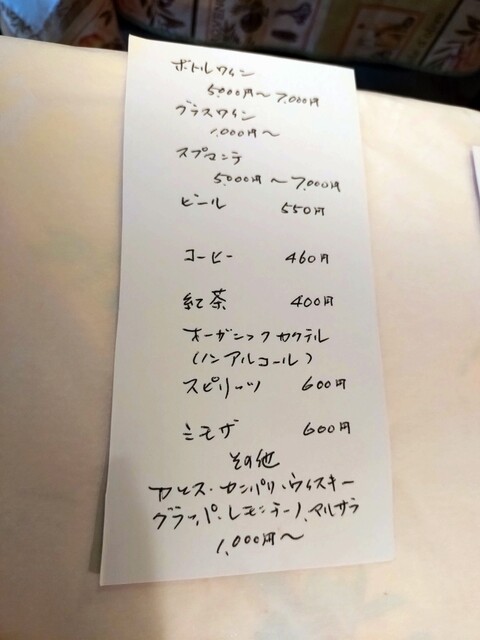 ボトルワイン
5,000円～7,000円
グラスワイン
1,000円～
スプマンテ
5,000円～7,000円
ビール 550円
コーヒー 460円
紅茶 400円
オーガニックカクテル
(ノンアルコール)
スピリッツ 600円
ミモザ 600円
その他
カシス・カンパリ・ウィスキー
グラッパ・レモンチーノ、マルサラ
1,000円～